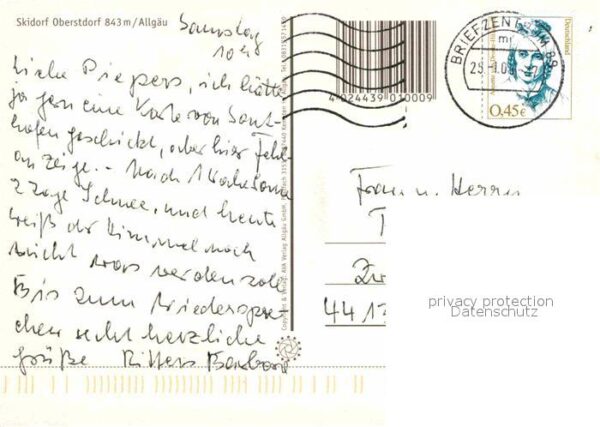 Skidorf Oberstdorf 843 m/Allgäu
Samstag
Liebe Piepers, ich hätte
ja gern eine Karte von Sont-
hofen geschickt, aber hier Fehl-
anzeige. - Nach 1 Woche Sonne
2 Tage Schnee, und heute
weiß der Himmel noch
nicht was werden soll.
Bis zum Wiederspre-
chen recht herzliche
Grüße Ritters Barbara
4 024439 010009
BRIEFZENTRUM 89
Deutschland
0,45€
Frau u. Herrn
4413
privacy protection
Datenschutz